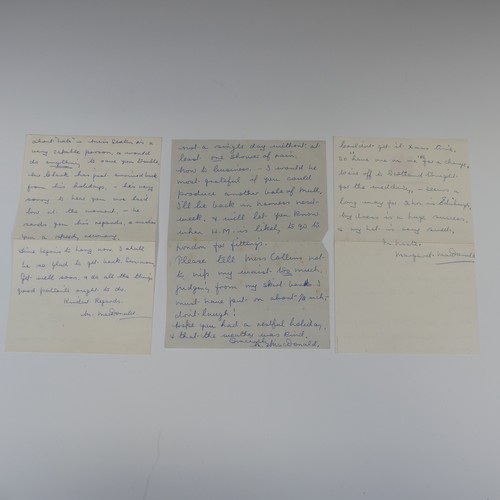 about "hats" – Miss Seaton is a
very capable person, & would
do anything to save you trouble,
Mr Black has just arrived back
from his holidays, & was very
sorry to hear you were laid
low at the moment – he
sends you his regards, & wishes
you a speedy recovery.
Time begins to hang now & I shall
be so glad to get back
Get well soon, & do all the things
good patients ought to do.
Kindest Regards,
M. MacDonald.
not a single day without at
least one shower of rain,
Now to business – I would be
most grateful if you could
produce another bale of Mull,
I'll be back in harness next
week, & will let you know
when H.M. is likely to go to
London for fittings.
Please tell Miss Collins not
to nip my waist too much,
judging from my skirt bands I
must have put on about
don't laugh!
Hope you had a restful holiday,
& that the weather was kind,
Sincerely,
M. MacDonald.
couldn't get it home time,
So have me on we for a change,
were off to Scotland tonight
for the wedding –
long may you
my is a huge success,
& my hat is very small,
M
Margaret MacDonald